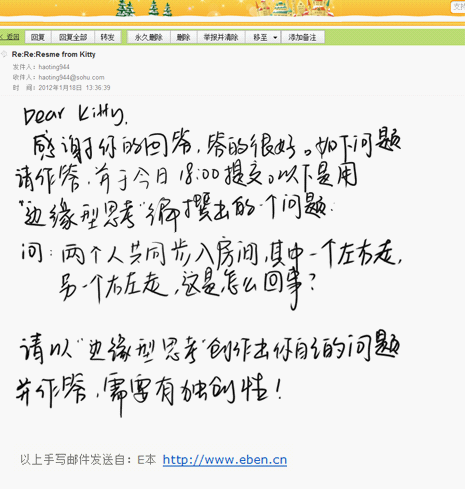 支持
< 返回 回复 回复全部 转发 永久删除 删除 举报并清除 移至 添加备注
Re:Re:Resme from Kitty
发件人: haoting944
收件人: haoting944@sohu.com
时 间: 2012年1月18日 13:36:39
Dear Kitty,
感谢你的回答,答的很好。如下问题
请作答,并于今日18:00提交。以下是用
"边缘型思考"编撰出的一个问题:
问:两个人共同步入房间,其中一个左右走,
另一个右左走,这是怎么回事?
请以"边缘型思考"创作出你自己的问题
并作答,需要有独创性!
以上手写邮件发送自: E本 http://www.eben.cn